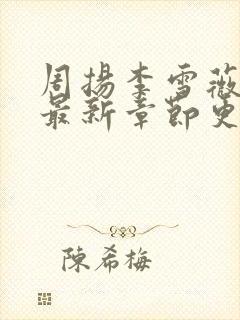 周揚李雪薇
最新章節更
陳希梅